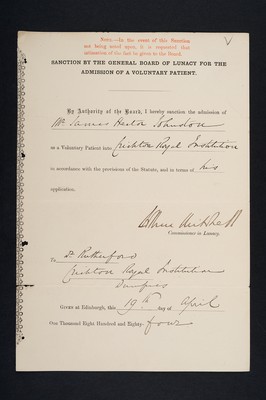 NOTE.—In the event of this Sanction
not being acted upon, it is requested that
intimation of the fact be given to the Board.
SANCTION BY THE GENERAL BOARD OF LUNACY FOR THE
ADMISSION OF A VOLUNTARY PATIENT.
By Authority of the Board, I hereby sanction the admission of
Mr James Hector Johnston
as a Voluntary Patient into Crichton Royal Institution
in accordance with the provisions of the Statute, and in terms of his
application.
Arthur Mitchell
Commissioner in Lunacy.
To Dr Rutherford
Crichton Royal Institution
Dumfries
Given at Edinburgh, this 19th day of April
One Thousand Eight Hundred and Eighty-four